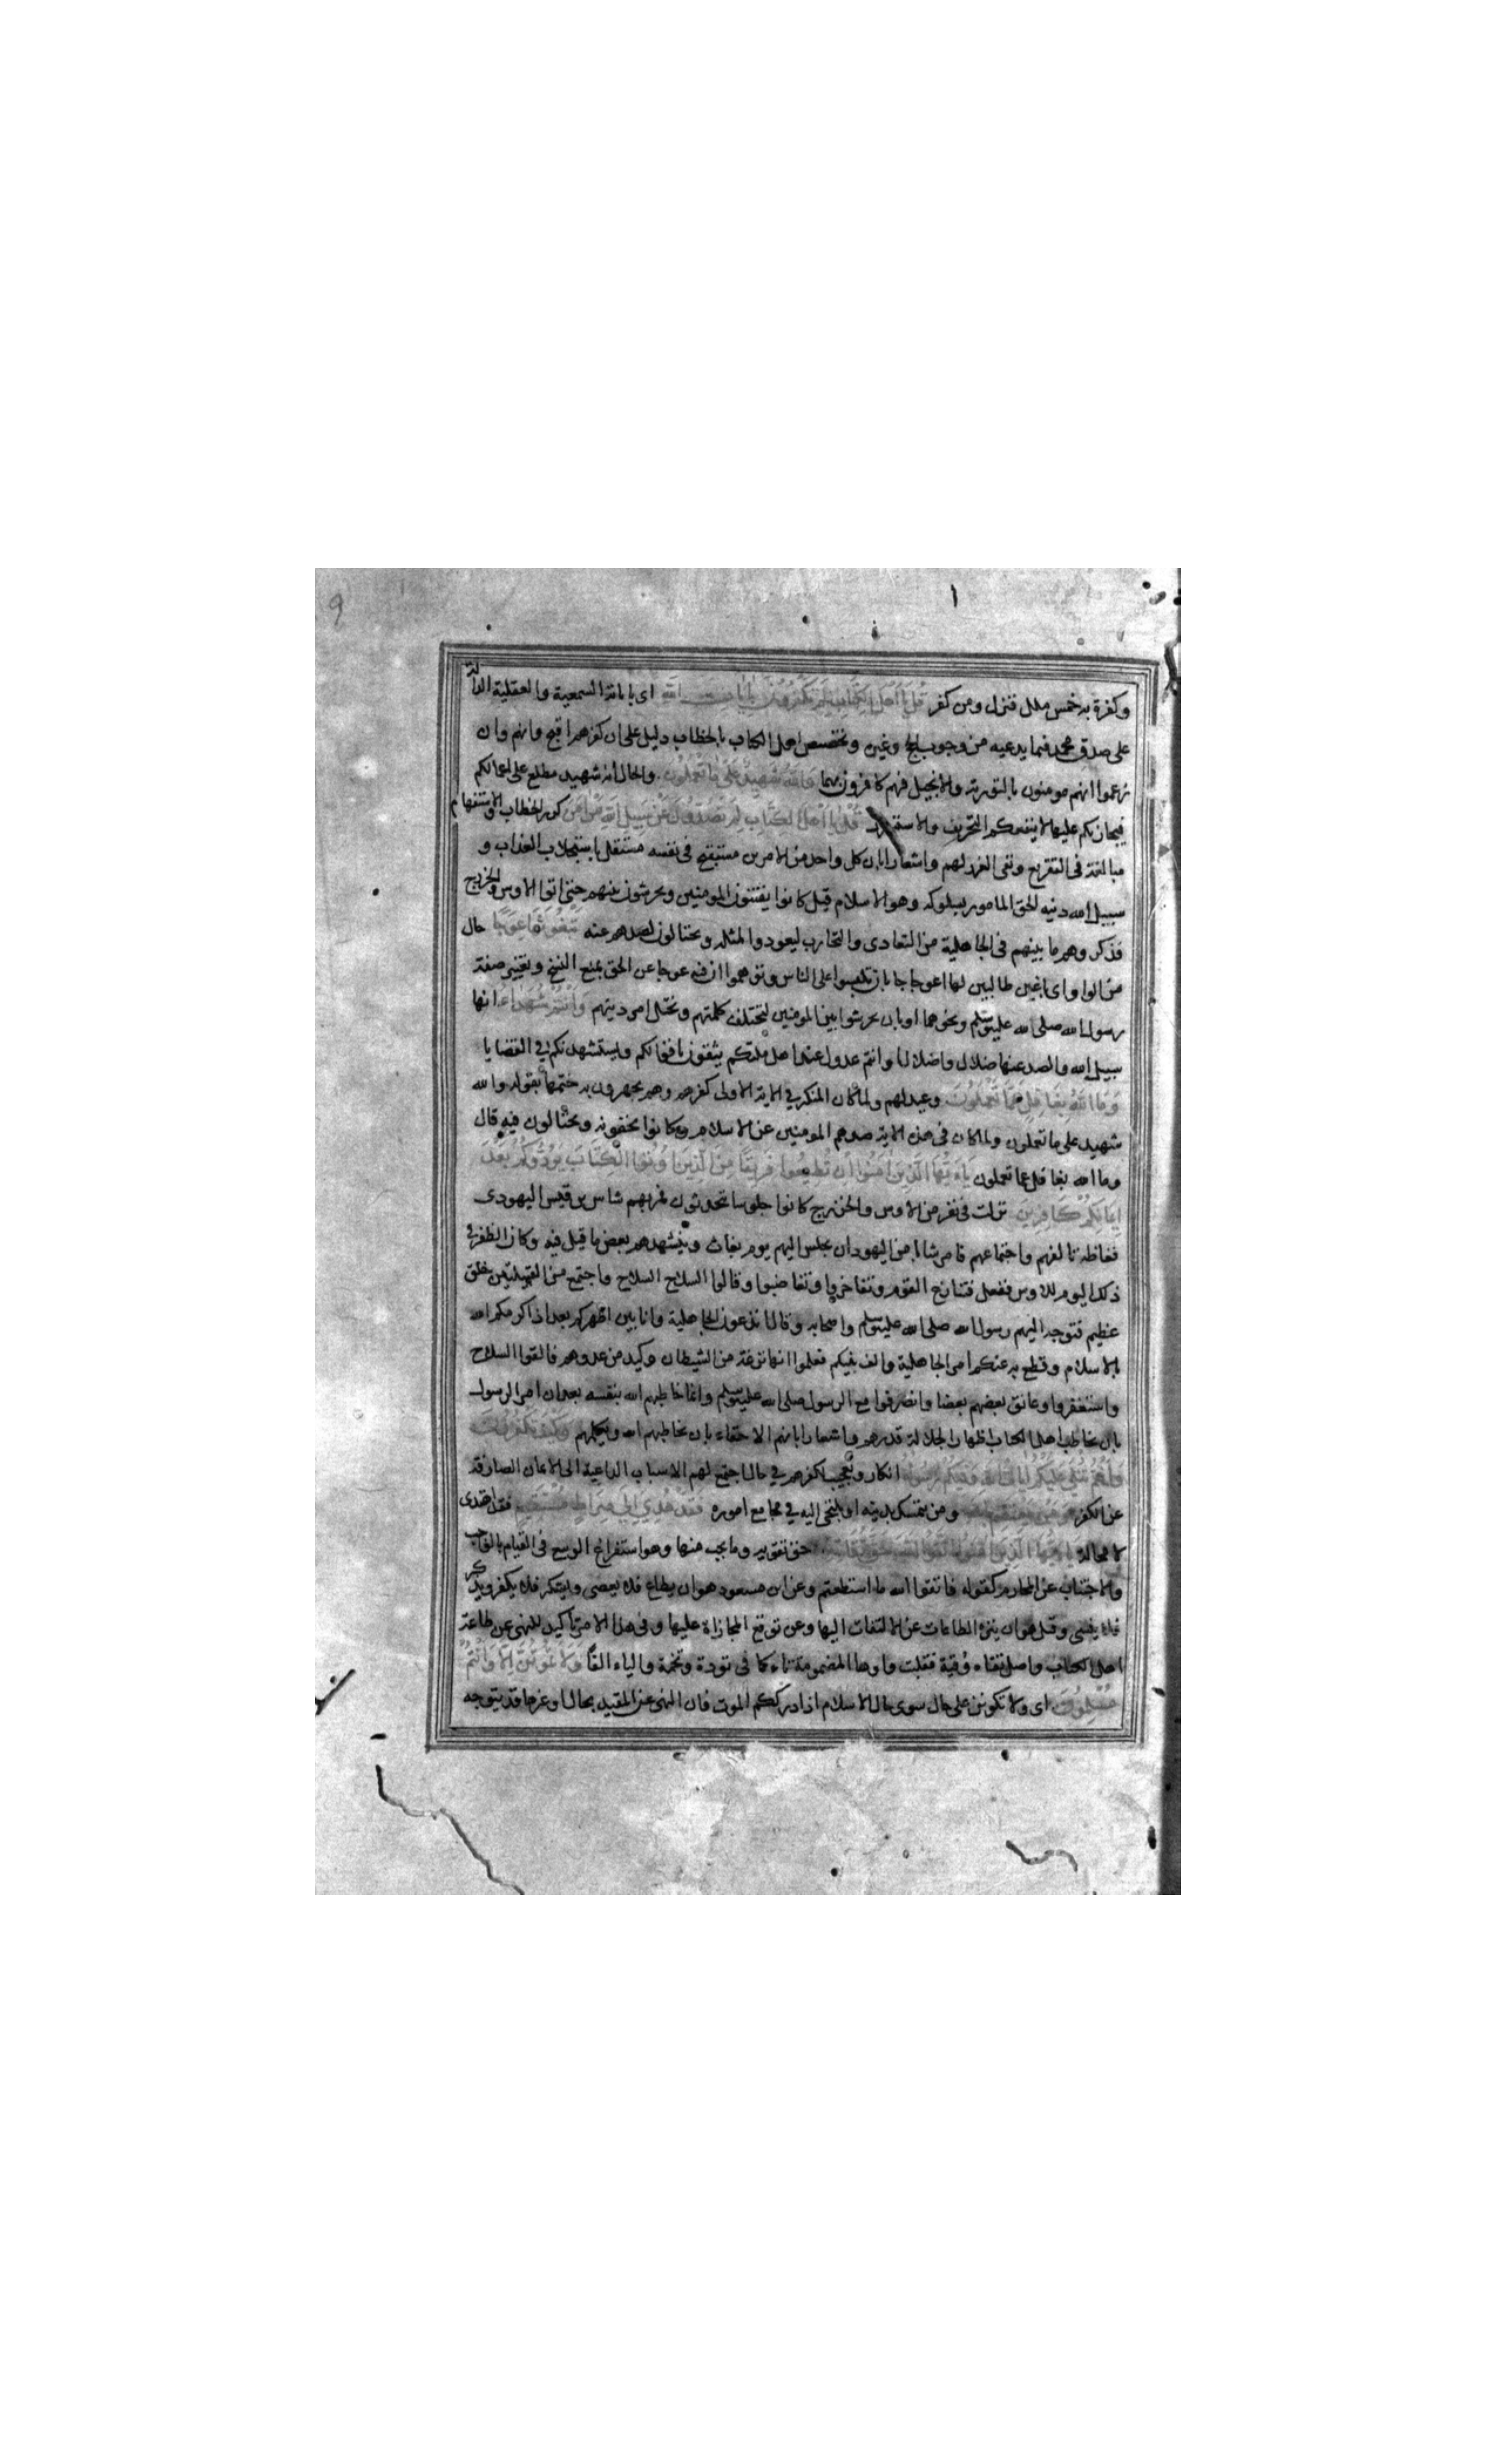 وكفرة به خمس ملل فنزل ومن كفر قل يا اهل الكتاب لم تكفرون بايات الله اى باياته السمعية والعقلية الدالة
على صدق محمد فيما يدعيه من وجوب الحج وغيره وتخصيص اهل الكتاب بالخطاب دليل على ان كفرهم اقبح وانهم وان
زعموا انهم مومنون بالتورية والانجيل فهم كافرون بهما والله شهيد على ما تعملون والحال انه شهيد مطلع على اعمالكم
فيجازيكم عليها لا ينفعكم التحريف والاستسرار قل يا اهل الكتاب لم تصدون عن سبيل الله من امن كرر الخطاب والاستفهام
مبالغة فى التقريع ونفى العذر لهم واشعارا بان كل واحد من الامرين مستقبح فى نفسه مستقل باستجلاب العذاب و
سبيل الله دينه الحق المامور بسلوكه وهو الاسلام قيل كانوا يفتنون المومنين ويحرشون بينهم حتى اتوا الاوس والخزرج
فذكروهم ما بينهم فى الجاهلية من التعادى والتحارب ليعودوا لمثله ويحتالون لصدهم عنه تبغونها عوجا حال
من الواو اى باغين طالبين لها اعوجاجا بان تلبسوا على الناس وتوهموا ان فيه عوجا عن الحق بمنع النسخ وتغيير صفة
رسول الله صلى الله عليه وسلم ونحوهما او بان تحرشوا بين المومنين لتختلف كلمتهم ويختل امر دينهم وانتم شهداء انها
سبيل الله والصد عنها ضلال واضلال او انتم عدول عند اهل ملتكم يثقون باقوالكم ويستشهدونكم في القضايا
وما الله بغافل عما تعملون وعيد لهم ولما كان المنكر في الاية الاولى كفرهم وهم يجهرون به ختمها بقوله والله
شهيد على ما تعملون ولما كان فى هذه الاية صدهم المومنين عن الاسلام وكانوا يخفونه ويحتالون فيه قال
وما الله بغافل عما تعملون يا ايها الذين امنوا ان تطيعوا فريقا من الذين اوتوا الكتاب يردوكم بعد
ايمانكم كافرين نزلت فى نفر من الاوس والخزرج كانوا جلوسا يتحدثون فمر بهم شاس بن قيس اليهودى
فغاظه تالفهم واجتماعهم فامر شابا من اليهود ان يجلس اليهم يوم بعاث وينشدهم بعض ما قيل فيه وكان الظفر في
ذلك اليوم للاوس ففعل فتنازع القوم وتفاخروا وتغاضبوا وقالوا السلاح السلاح واجتمع من القبيلتين خلق
عظيم فتوجه اليهم رسول الله صلى الله عليه وسلم واصحابه وقال اتدعون الجاهلية وانا بين اظهركم بعد اذ اكرمكم الله
بالاسلام وقطع به عنكم امر الجاهلية والف بينكم فعلموا انها نزغة من الشيطان وكيد من عدوهم فالقوا السلاح
واستغفروا وعانق بعضهم بعضا وانصرفوا مع الرسول صلى الله عليه وسلم وانما خاطبهم الله بنفسه بعد ان امر الرسول
بان يخاطب اهل الكتاب اظهارا لجلالة قدرهم واشعارا بانهم الاحقاء بان يخاطبهم الله ويكلمهم وكيف تكفرون
وانتم تتلى عليكم ايات الله وفيكم رسوله انكار وتعجيب لكفرهم في حال اجتمع لهم الاسباب الداعية الى الايمان الصارفة
عن الكفر ومن يعتصم بالله ومن يتمسك بدينه او يلتجئ اليه في مجامع اموره فقد هدي الى صراط مستقيم فقد اهتدى
لا محالة يا ايها الذين امنوا اتقوا الله حق تقاته حق تقويه وما يجب منها وهو استفراغ الوسع فى القيام بالمواجب
والاجتناب عن المحارم كقوله فاتقوا الله ما استطعتم وعن ابن مسعود هو ان يطاع فلا يعصى ويشكر فلا يكفر ويذكر
فلا ينسى وقيل هو ان ينزه الطاعات عن الالتفات اليها وعن توقع المجازاة عليها وفى هذا الامر تاكيد للنهى عن طاعة
اهل الكتاب واصل تقاه وقية فقلبت واوها المضمومة تاء كما فى تودة وتخمة والياء الفا ولا تموتن الا وانتم
مسلمون اى ولا تكونن على حال سوى حال الاسلام اذا ادرككم الموت فان النهى عن المقيد بحال او غيرها قد يتوجه